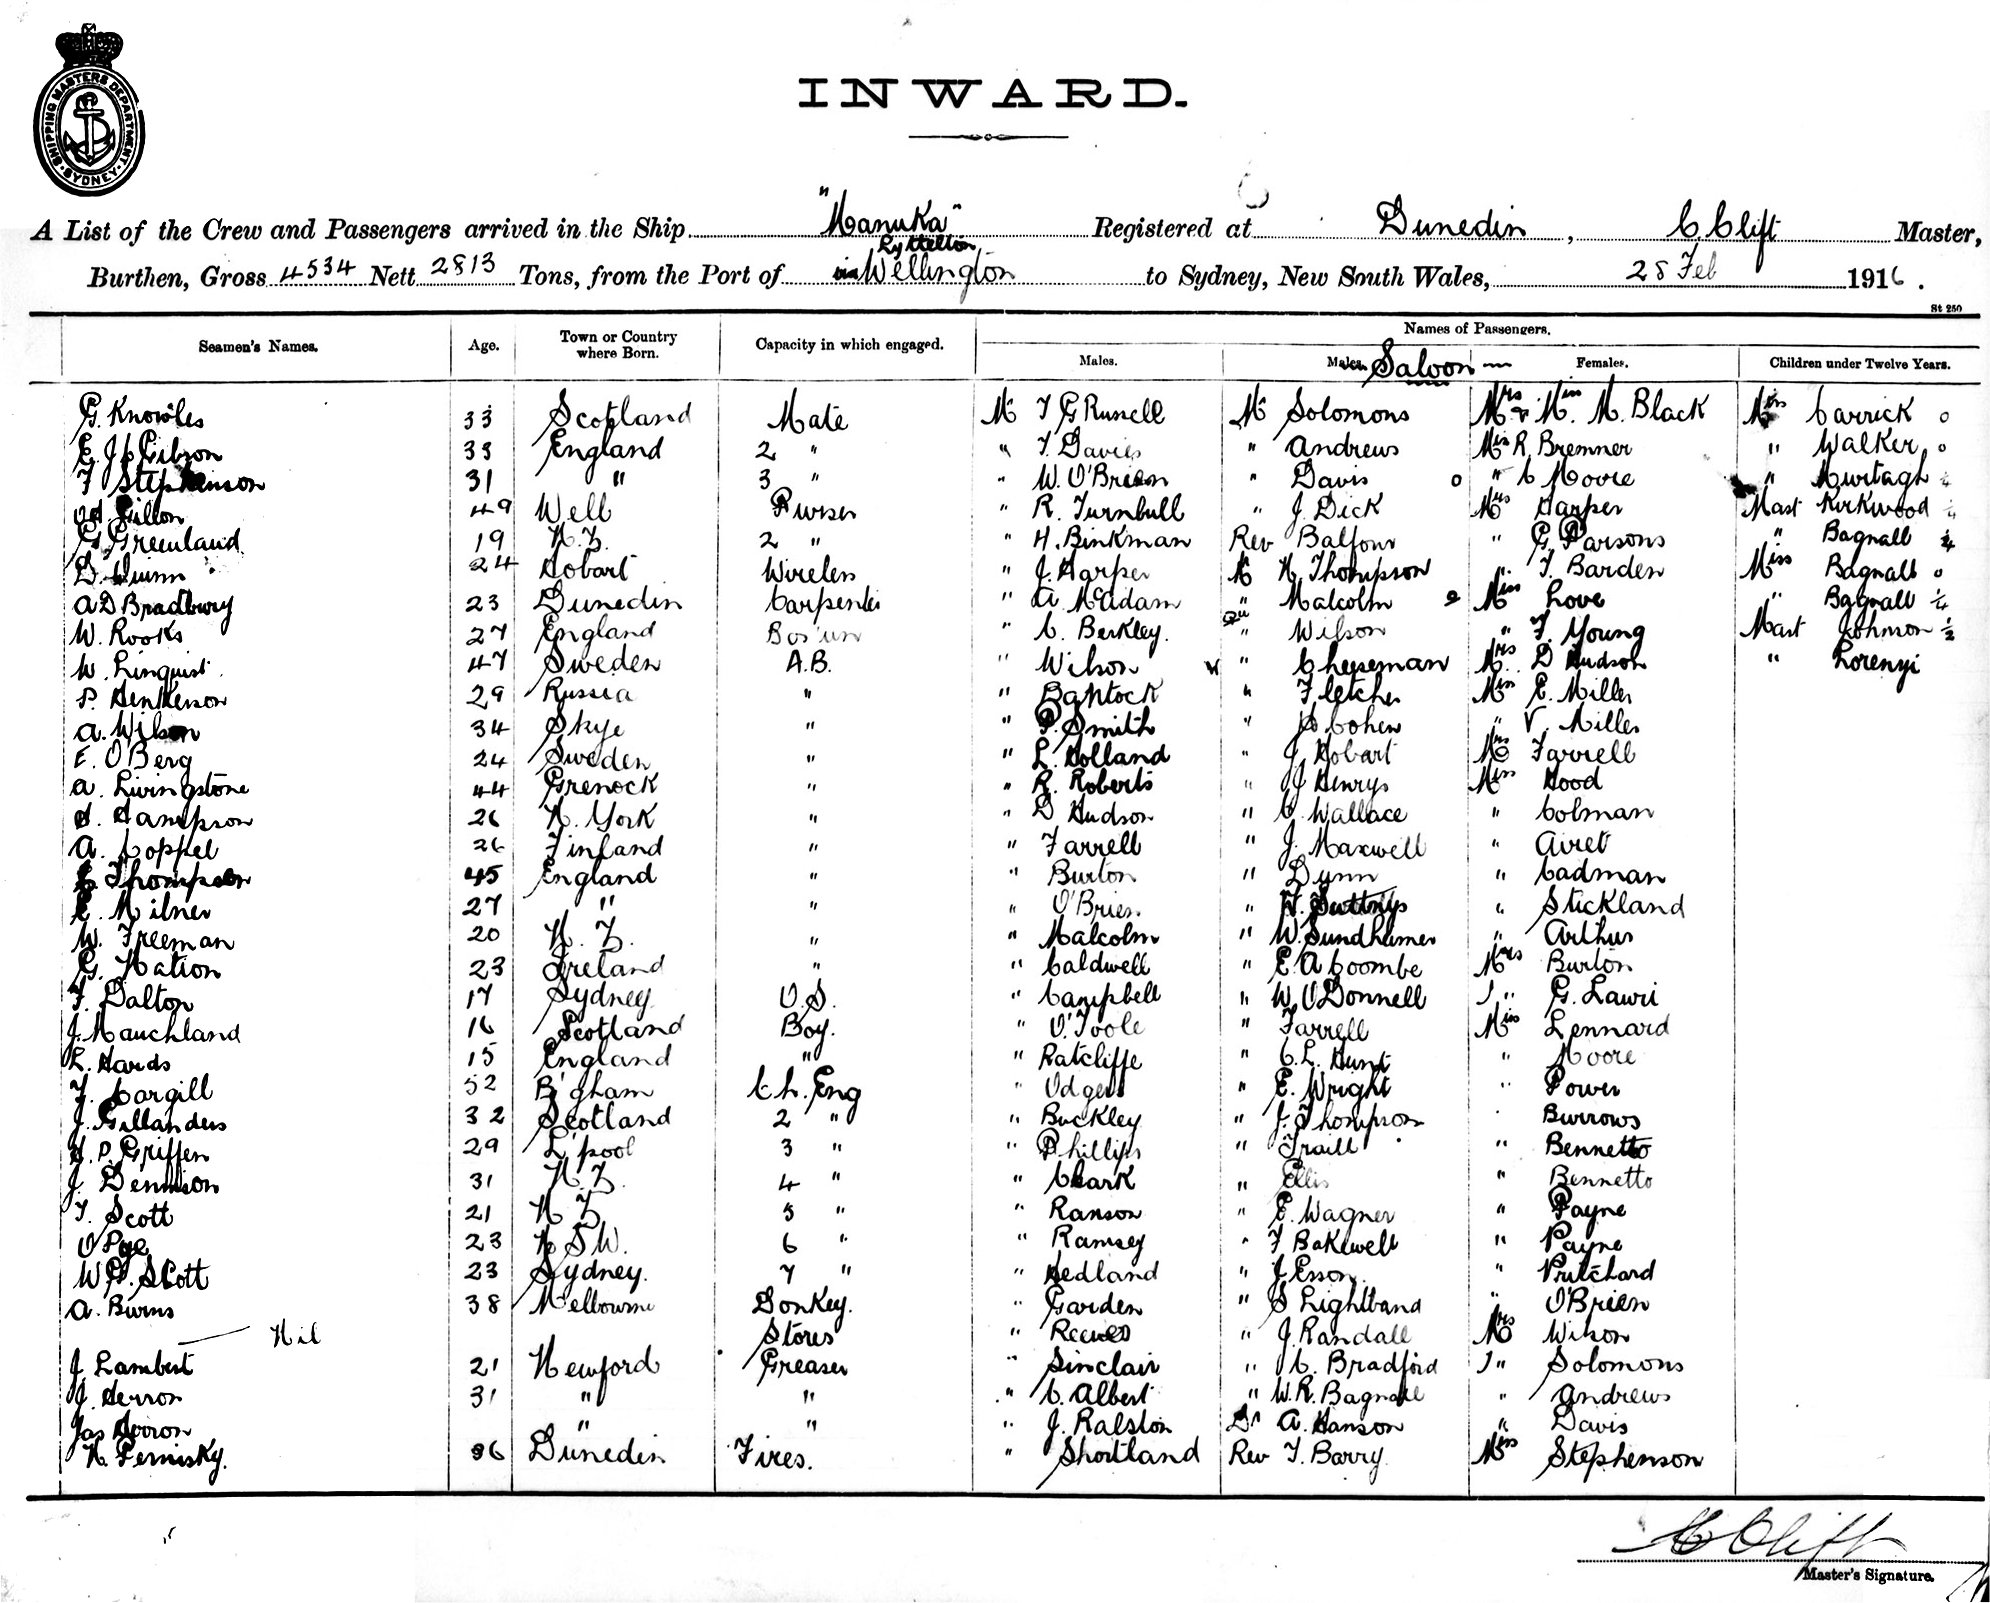 SHIPPING MASTERS DEPARTMENT · SYDNEY ·
INWARD.
A List of the Crew and Passengers arrived in the Ship "Manuka" Registered at Dunedin, C. Clift Master,
Lyttelton,
Burthen, Gross 4534 Nett 2813 Tons, from the Port of via Wellington to Sydney, New South Wales, 28 Feb 1916.
St 250
Seamen's Names. Age. Town or Country where Born. Capacity in which engaged. Names of Passengers.
Males. Males. Saloon Females. Children under Twelve Years.
G. Knowles 33 Scotland Mate Mr T G Russell Mr Solomons Mrs & Miss M. Black Miss Carrick 0
E. J. Gibson 33 England 2 " " T. Davies " Andrews Miss R Bremner " Walker 0
F Stephenson 31 " 3 " " W. O'Brien " Davis 0 " C Moore " Murtagh
Gillon 49 Well Purser " R. Turnbull " J. Dick Mrs Harper Mast Kirkwood
G Greenland 19 N.Z. 2 " " H. Binkman Rev Balfour " G. Parsons " Bagnall
D. 24 Hobart Wireless " J. Harper Mr N. Thompson " T. Barden Miss Bagnall 0
A D Bradbury 23 Dunedin Carpenter " A. McAdam " Malcolm Miss Love " Bagnall 1/4
W. Rooks 27 England Bos'un " C. Berkley. " Wilson " F. Young Mast Johnson 1/2
W. Linquist 47 Sweden A.B. " Wilson " Cheeseman Mrs. D Hudson " Lorenyi
P. Henkerson 29 Russia " " Bantock " Fletcher Miss E. Miller
A. Wilson 34 Skye " " P. Smith " Cohen " V. Miller
E. O'Berg 24 Sweden " " L. Holland " J. Hobart Mrs Farrell
A. Livingstone 44 Grenock " " R. Roberts " J Henrys Miss Hood
H. Hampson 26 N. York " " D Hudson " C. Wallace " Colman
A. Coppel 26 Finland " " Farrell " J. Maxwell " Airet
Thompson 45 England " " Burton " Dunn " Cadman
E. Milner 27 " " " O'Brien. " " Stickland
W. Freeman 20 N. Z. " " Malcolm " W. Sundheimer " Arthur
G. Nation 23 Ireland " " Caldwell " E A Coombe Mrs Burton
F. Dalton 17 Sydney O.S. " Campbell " W. O'Donnell " G. Lawri
J. Mauchland 16 Scotland Boy. " O'Toole " Farrell Miss Lennard
L. Hards 15 England " " Ratcliffe " C. L. Hunt " Moore
J. Cargill 52 B'gham Ch. Eng " Odgers " E. Wright " Power
J. Gillanders 32 Scotland 2 " " Buckley " J. Thompson Burrows
H. P. Griffen 29 L'pool 3 " " Phillips " Traill " Bennetto
J. Dennison 31 N. Z. 4 " " Clark " Ellis " Bennetto
T. Scott 21 N Z 5 " " Ranson " E. Wagner " Payne
O Pye 23 N S W. 6 " " Ramsey " F Bakewell " Payne
W. P. Scott 23 Sydney. 7 " " Hedland " J Esson. " Pritchard
A. Burns 38 Melbourne Donkey. " Garden " S Lightband " O'Brien
Nil Stores " Reeves " J. Randall Mrs Wilson
J Lambert 21 Newford Greaser " Sinclair " C. Bradford " Solomons
J. Herron 31 " " " C. Albert " W. R. Bagnall " Andrews
Jas " " " J. Ralston Dr A. Hanson " Davis
N. Pernisky. 36 Dunedin Fires. " Shortland Rev T. Barry Miss Stephenson
C Clift
Master's Signature.